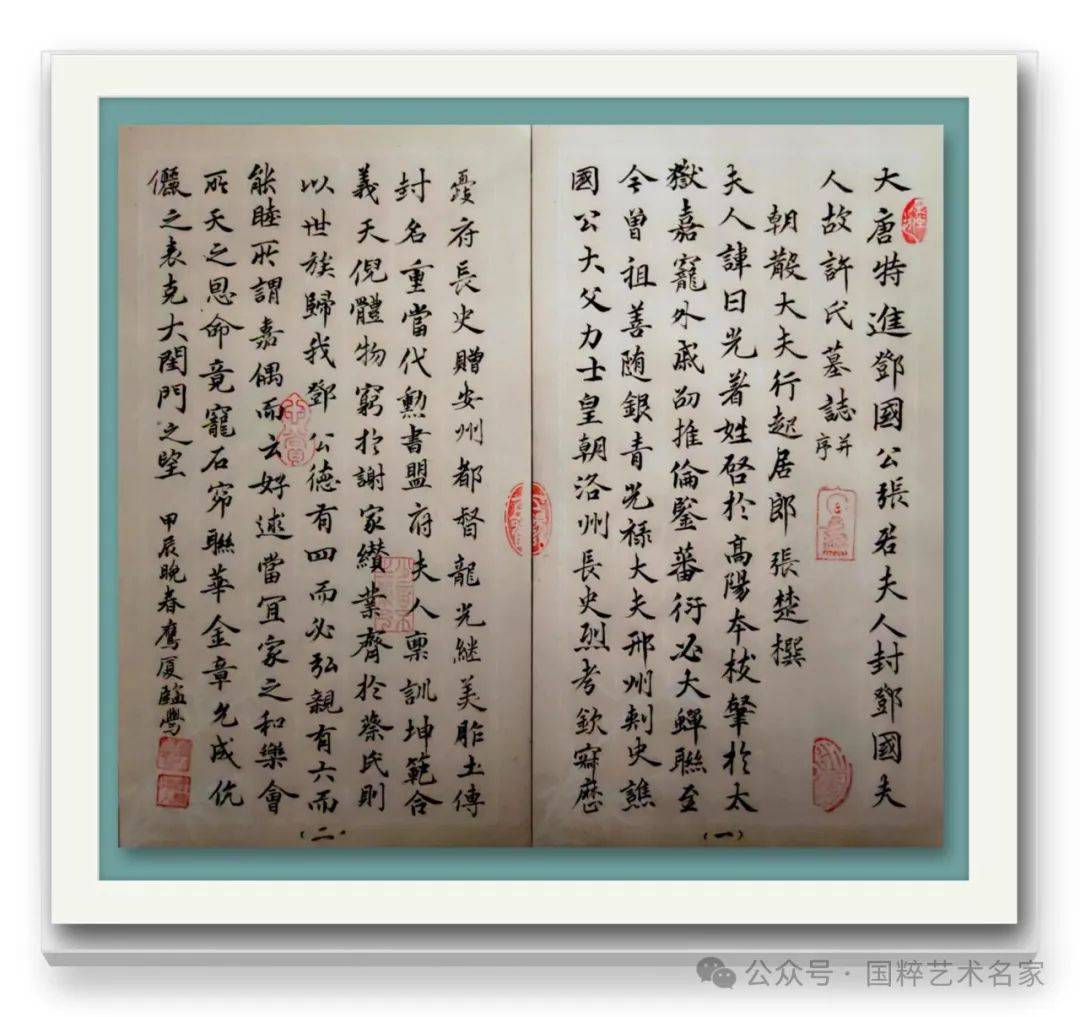 大唐特進鄧國公張君夫人封鄧國夫
人故許氏墓誌并序
朝散大夫行起居郎張楚撰
夫人諱曰光著姓啓於高陽本枝肇於太
嶽嘉寵外戚劭推倫鑒蕃衍必大蟬聯至
今曾祖善随銀青光禄大夫邢州刺史譙
國公大父力士皇朝洛州長史烈考欽寂歷
夔府長史贈安州都督龍光継美胙土傳
封名重當代勳書盟府夫人禀訓坤範合
義天倪體物窮於謝家纘業齊於蔡氏則
以世族歸我鄧公德有四而必弘親有六而
能睦所謂嘉偶而云好逑當宜家之和樂會
所天之恩命竟寵石窌聯華金章允成伉
儷之表克大閨門之
甲辰晚春鷹厦
(一)
(二)
公众号·国粹艺术名家